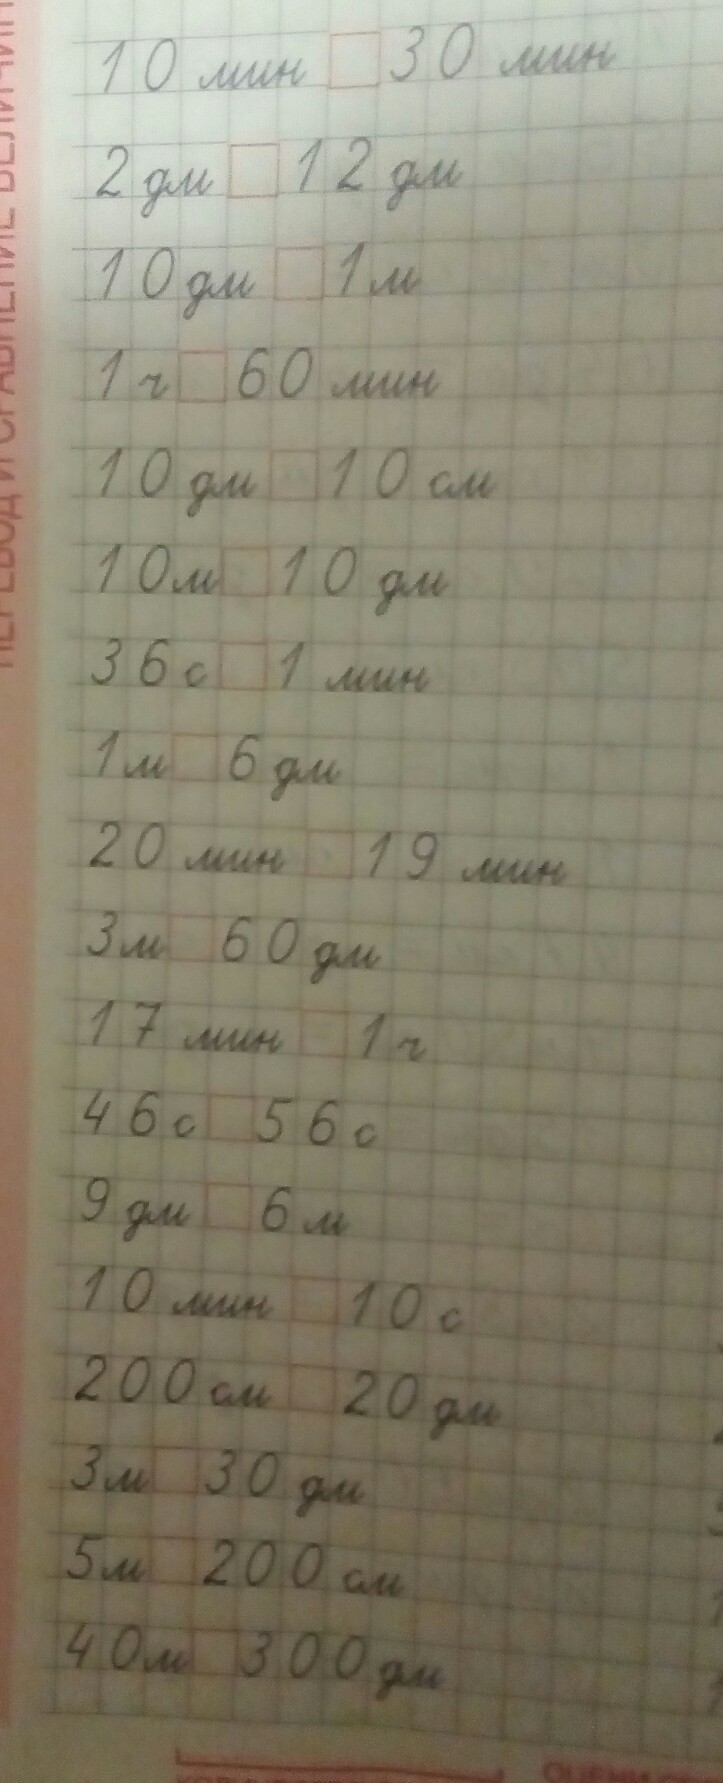 ПЕРЕВОД И СРАВНЕНИЕ ВЕЛИЧИН
10 мин □ 30 мин
2 дм □ 12 дм
10 дм □ 1 м
1 ч □ 60 мин
10 дм □ 10 см
10 м □ 10 дм
36 с □ 1 мин
1 м □ 6 дм
20 мин □ 19 мин
3 м □ 60 дм
17 мин □ 1 ч
46 с □ 56 с
9 дм □ 6 м
10 мин □ 10 с
200 см □ 20 дм
3 м □ 30 дм
5 м □ 200 см
40 м □ 300 дм